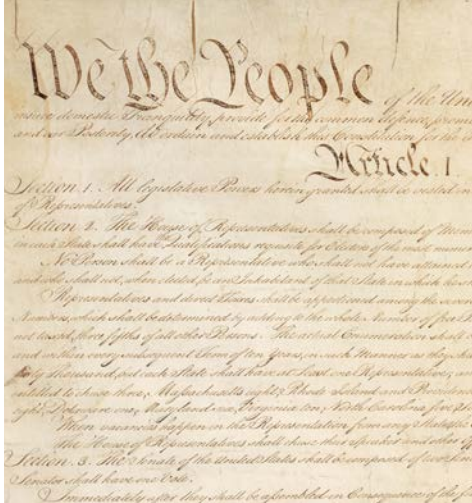 We the People of the Un
insure domestic Tranquility, provide for the common defence, prom
and our Posterity, do ordain and establish this Constitution for the
Article. I.
Section. 1. All legislative Powers herein granted shall be vested in
of Representatives.
Section. 2. The House of Representatives shall be composed of Mem
in each State shall have Qualifications requisite for Electors of the most numer
No Person shall be a Representative who shall not have attained
and who shall not, when elected, be an Inhabitant of that State in which he
Representatives and direct Taxes shall be apportioned among the seve
Numbers, which shall be determined by adding to the whole Number of free P
not taxed, three fifths of all other Persons. The actual Enumeration shall
and within every subsequent Term of ten Years, in such Manner as they sh
thirty Thousand, but each State shall have at Least one Representative; an
entitled to chuse three, Massachusetts eight, Rhode Island and Providen
eight, Delaware one, Maryland six, Virginia ten, North Carolina five,
When vacancies happen in the Representation from any State, the
The House of Representatives shall chuse their Speaker and other
Section. 3. The Senate of the United States shall be composed of two
Senator shall have one Vote.
Immediately after they shall be assembled in Consequence of the